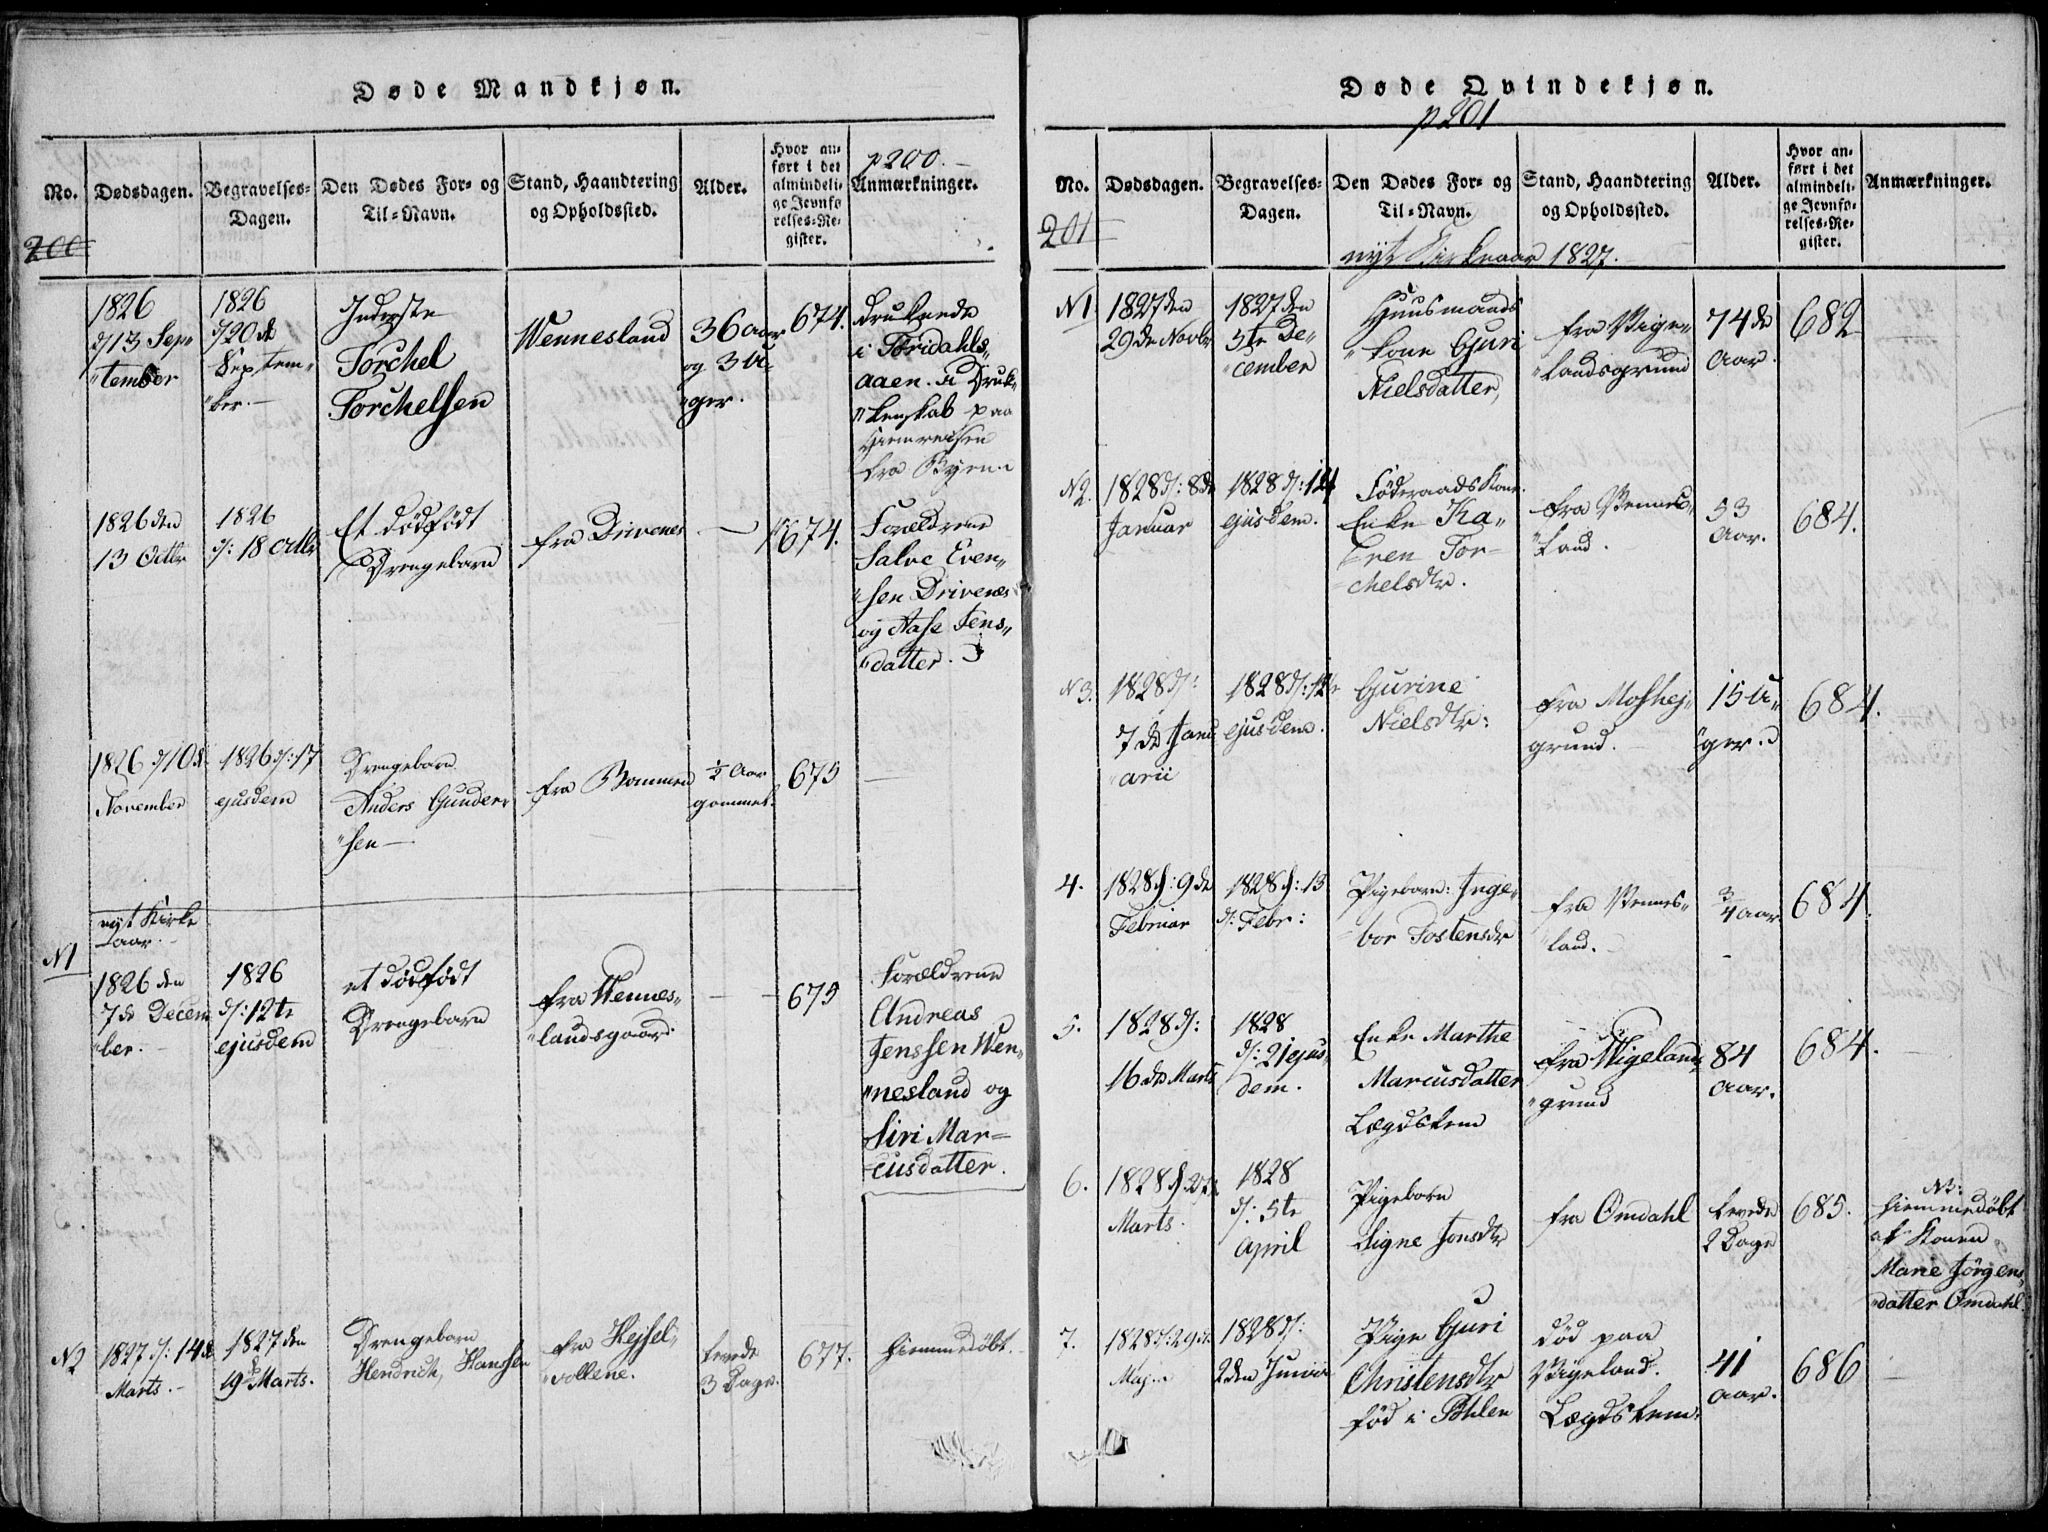 Døde Mandkjøn.
p 200.
No.
Dødsdagen.
Begravelses-
Dagen.
Den Dødes For- og
Til-Navn.
Stand, Haandtering
og Opholdssted.
Alder.
Hvor an-
ført i det
almindeli-
ge Jevnfø-
relses-Re-
gister.
Anmærkninger.
200
1826
d/13 Sep-
"tember
1826
d/20de
Septem-
"ber.
Inderste
Torchel
Torchelsen
Wennesland
36 Aar
og 3 U-
"ger.
674.
Druknede
i Torridahls-
aaen. i Druk-
"kenskab paa
Hiemreisen
fra Byen.
1826 den
13 Octbr
1826
d: 18 Octbr
Et dødfødt
Drengebarn
fra Drivenes
—
674.
Forældrene
Salve Even-
"sen Drivenes
og Aase Jens-
"datter.
1826 d/10de
November
1826 d: 17
ejusdem
Drengebarn
Anders Gunder
"sen —
fra Bommen
1/2 Aar
gammel.
675
—
nyt Kirke
aar.
N1
1826 den
7de Decem
"ber.
1826
d: 12te
ejusdem
et dødfødt
Drengebarn
fra Wennes-
"landsgaard.
— —
675
Forældrene
Andreas
Jenssen Wen-
"nesland og
Siri Mar-
cusdatter.
N2
1827 d: 14de
Marts.
1827 den
19de Marts.
Drengebarn
Hendrich Hanssen
fra Hejsel-
"vollene.
levede
3 Dage.
677.
hiemmedøbt.
Døde Qvindekjøn.
p 201
No.
Dødsdagen.
Begravelses-
Dagen.
Den Dødes For- og
Til-Navn.
Stand, Haandtering
og Opholdssted.
Alder.
Hvor an-
ført i det
almindeli-
ge Jevnfø-
relses-Re-
gister.
Anmærkninger.
201
nyt Kirkeaar 1827.
N1
1827 den
29de Novbr
1827 den
5te De-
"cember
Huusmands
"kone Guri
Nielsdatter,
fra Vige-
"landsgrund
74de
Aar.
682
N2.
1828 d: 8de
Januar
1828 d: 14
ejusdem.
Föderaads Kone
Enke Ka-
"ren Tor-
chelsdtr.
fra Vennes-
"land.
53
Aar.
684.
N3.
1828 d:
7de Janu
"arii
1828 d: 12te
ejusdem.
Gurine
Nielsdtr:
fra Moshej-
grund.
15 U-
"ger.
684.
4.
1828 d: 9de
Februar
1828 d: 13
d: Febr:
Pigebarn: Inge-
bor Tostensdtr
fra Vennes-
land.
3/4 Aar
684.
5.
1828 d:
16de Marts
1828
d: 21 ejus-
dem.
Enke Marthe
Marcusdatter
Lægdslem
fra Wigelands
"grund
84
Aar.
684.
6.
1828 d:
Marts.
1828
d: 5te
April
Pigebarn
Signe Jonsdtr
fra Omdahl
levede
2 Dage
685.
NB:
hiemmedøbt
af Konen
Marie Jørgens-
"datter Omdahl.
7.
1828 d: 29de
Maj.
1828 d:
2den Junii
Pige Guri
Christensdtr
fød i
død paa
Vigeland.
Lægdslem.
41
Aar.
686